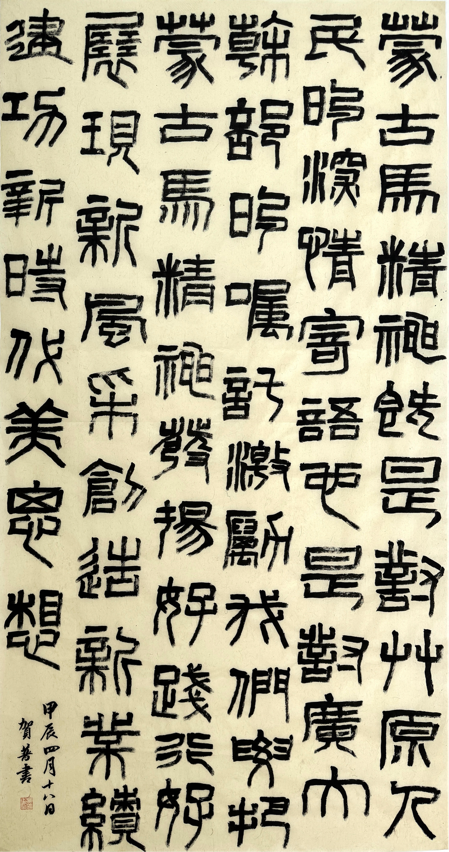 蒙古馬精神既是對艸原人
民的深情寄語也是對廣大
榦部的囑託激勵我們要把
蒙古馬精神發揚好踐行好
展現新風采創造新業績
建功新時代美思想
甲辰四月十八日
賀書